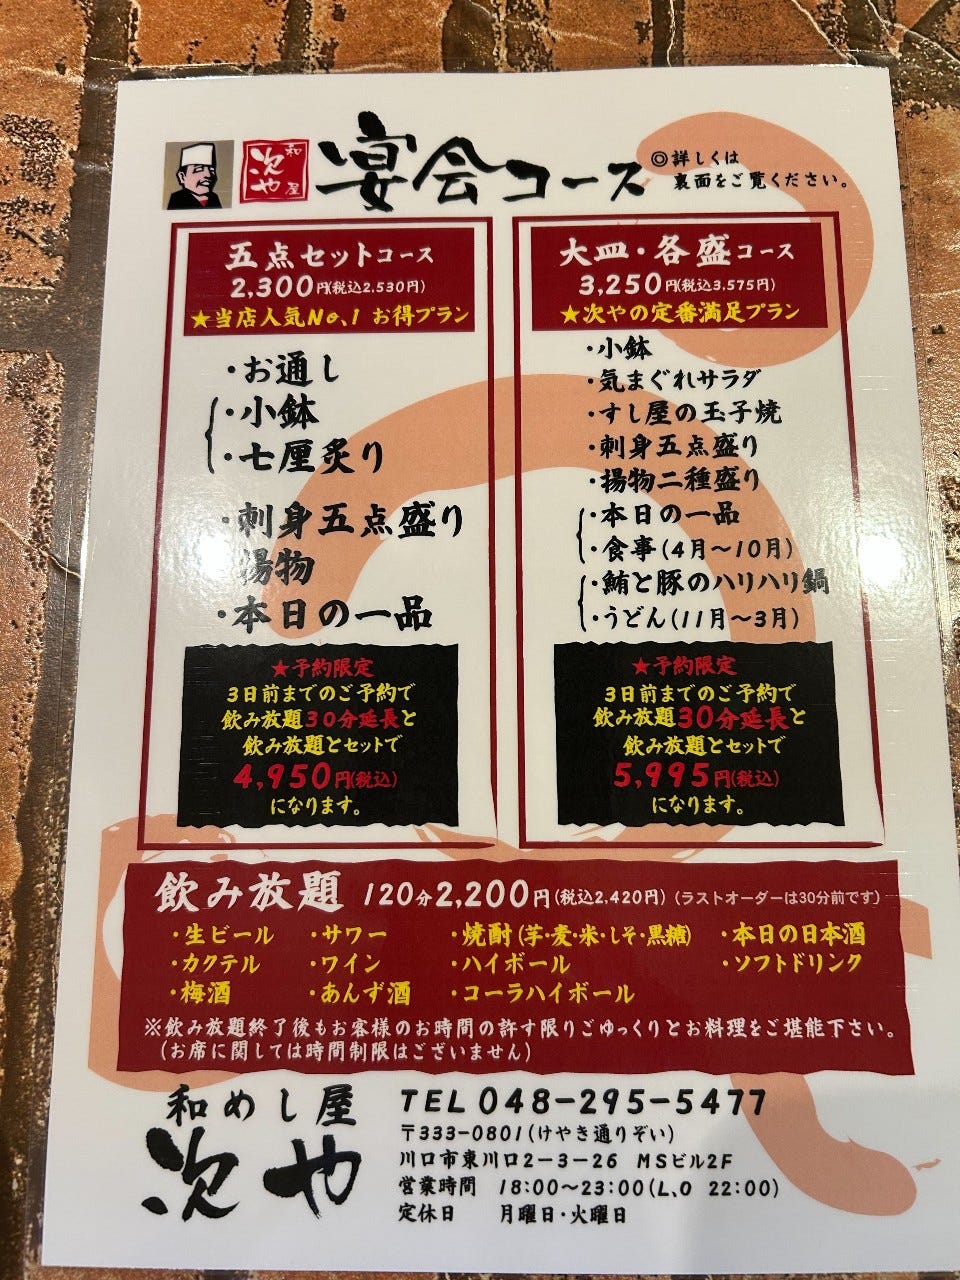 和
次や
屋
宴会コース
◎詳しくは
裏面をご覧ください。
五点セットコース
2,300円(税込2,530円)
★当店人気No.1 お得プラン
・お通し
・小鉢
・七厘炙り
・刺身五点盛り
揚物
・本日の一品
★予約限定
3日前までのご予約で
飲み放題30分延長と
飲み放題とセットで
4,950円(税込)
になります。
大皿・各盛コース
3,250円(税込3,575円)
★次やの定番満足プラン
・小鉢
・気まぐれサラダ
・すし屋の玉子焼
・刺身五点盛り
・揚物二種盛り
・本日の一品
・食事(4月〜10月)
・鮪と豚のハリハリ鍋
・うどん(11月〜3月)
★予約限定
3日前までのご予約で
飲み放題30分延長と
飲み放題とセットで
5,995円(税込)
になります。
飲み放題 120分2,200円(税込2,420円)(ラストオーダーは30分前です)
・生ビール ・サワー ・焼酎(芋・麦・米・しそ・黒糖) ・本日の日本酒
・カクテル ・ワイン ・ハイボール ・ソフトドリンク
・梅酒 ・あんず酒 ・コーラハイボール
※飲み放題終了後もお客様のお時間の許す限りごゆっくりとお料理をご堪能下さい。
(お席に関しては時間制限はございません)
和めし屋
次や
TEL 048-295-5477
〒333-0801(けやき通りぞい)
川口市東川口2-3-26 MSビル2F
営業時間 18:00〜23:00(L.O 22:00)
定休日 月曜日・火曜日